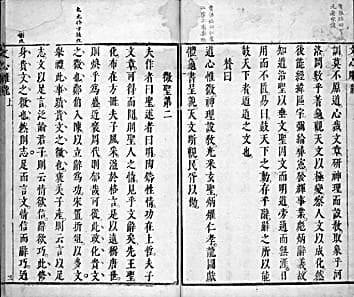 訓莫不原道心裁文章研神理而設教取象乎河
洛問數乎蓍龜觀天文以極變察人文以成化然
後能經緯區宇彌綸彝憲發輝事業彪炳辭義故
知道沿聖以垂文聖因文而明道旁通而無涯日
用而不匱易曰鼓天下之動者存乎辭辭之所以能
鼓天下者迺道之文也
贊曰
道心惟微神理設教光采玄聖炳燿仁孝龍圖獻
體龜書呈貌天文斯觀民胥以傚
徵聖第二
夫作者曰聖述者曰明陶鑄性情功在上哲夫子
文章可得而聞則聖人之情見乎文辭矣先王聖
化布在方冊夫子風采溢於格言是以遠稱唐世
則煥乎為盛近褒周代則郁哉可從此政化貴文
之徵也鄭伯入陳以立辭為功宋置折俎以多文
舉禮此事蹟貴文之徵也褒美子產則云言以足
志文以足言泛論君子則云情欲信辭欲巧此脩
身貴文之徵也然則志足而言文情信而辭巧
文心雕龍 上 三